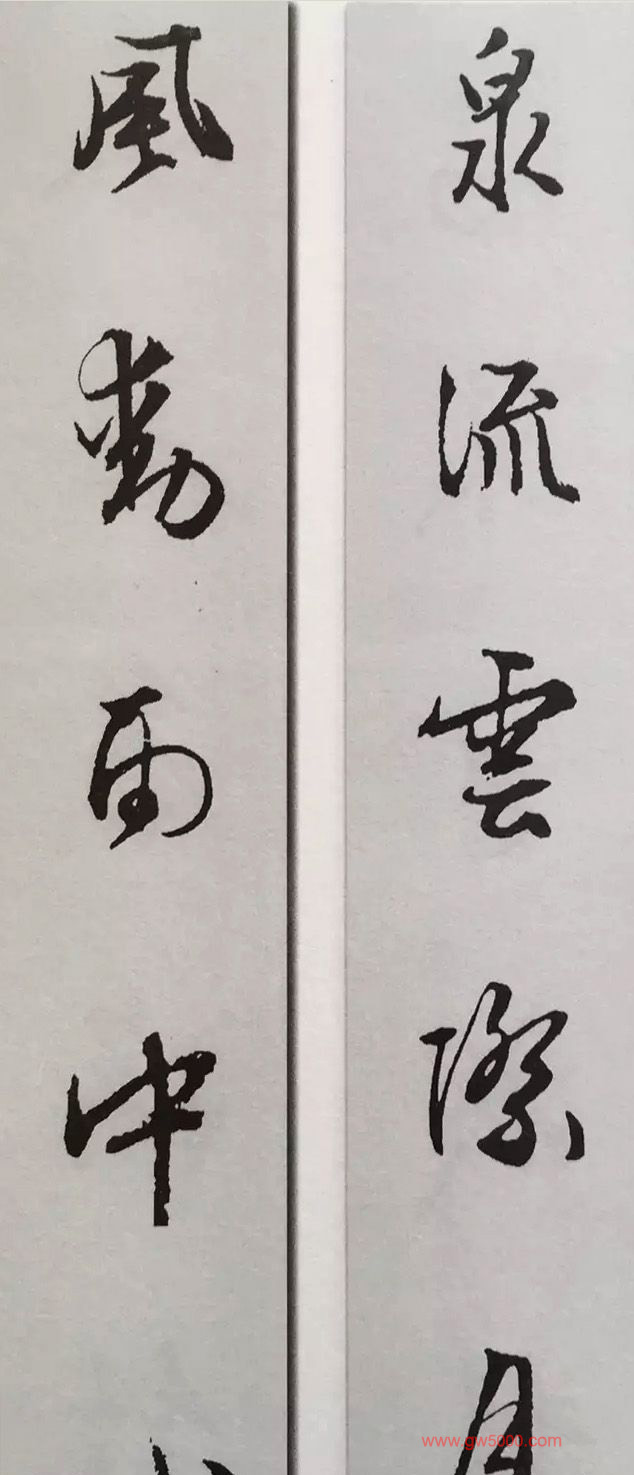 泉流雲際
風動雨中
www.gw5000.com